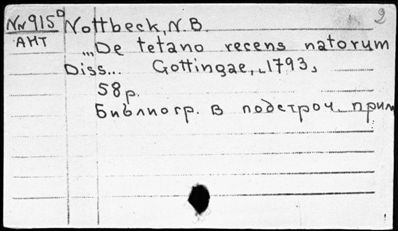 NN915D Nottbeck, N. B. 2
АНТ
„De tetano recens natorum
Diss... Gottingae, 1793,
58 p.
Библиогр. в подстроч. прим